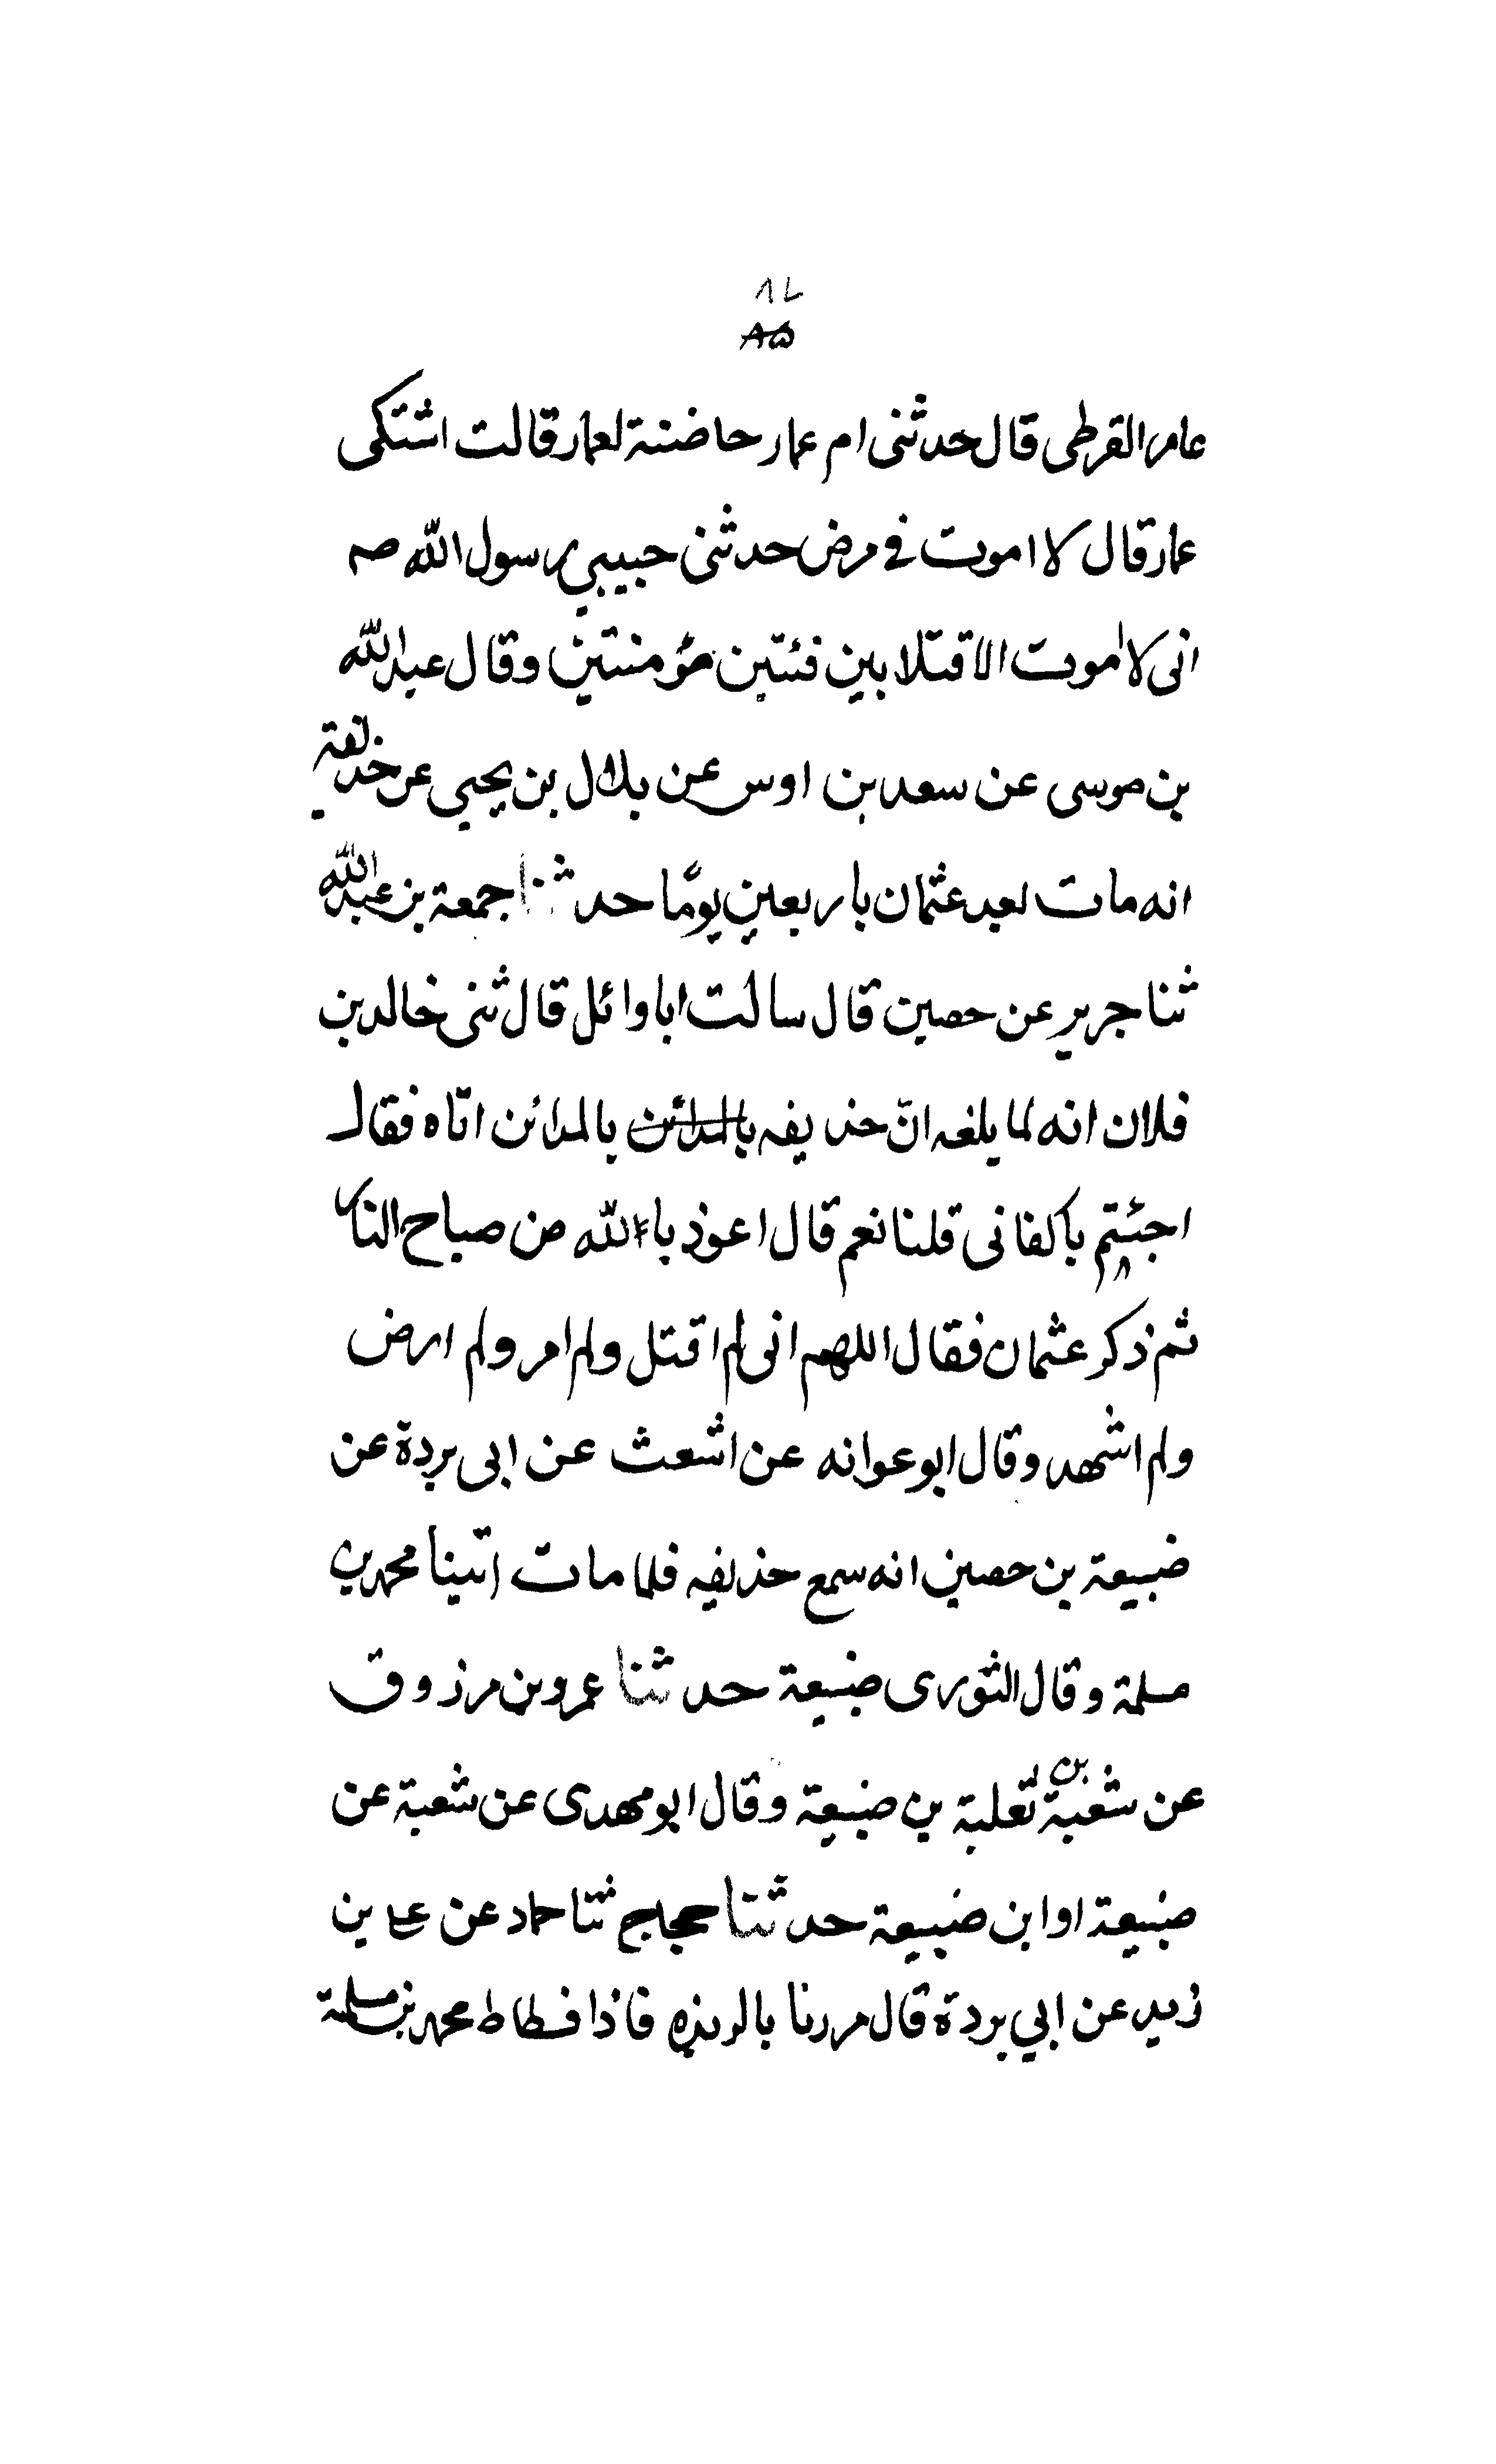 ٨٦
٨٥
عامر القرطى قال حدثنى ام عمار حاضنة لعمار قالت اشتكى
عمار قال لا اموت فى مرض حدثنى حبيبي رسول الله صه
انى لا اموت الا قتلا بين فئتين مؤمنتين وقال عبدالله
بن موسى عن سعد بن اوس عن بلال بن يحيي عن حذيفة
انه مات بعد عثمان باربعين يومًا حدثنا جمعة بن عبدالله
ثنا جرير عن حصين قال سالت ابا وائل قال ثنى خالد بن
فلان انه لما بلغه انّ حذيفه بالمدائن بالمدائن اتاه فقال
اجئتم باكفانى قلنا نعم قال اعوذ بالله من صباح النار
ثم ذكر عثمان فقال اللهم انى لم اقتل ولم امر ولم ارض
ولم اشهد وقال ابو عوانه عن اشعث عن ابى بردة عن
ضبيعة بن حصين انه سمع حذيفه فلما مات اتينا محمد بن
مسلمة وقال الثورى ضبيعة حدثنا عمرو بن مرزوق
عن شعبة بن ثعلبة بن ضبيعة وقال ابو مهدى عن شعبة عن
ضبيعة او ابن ضبيعة حدثنا حجاج ثنا حماد عن على بن
زيد عن ابي بردة قال مررنا بالربذه فاذا فسطاط محمد بن مسلمة